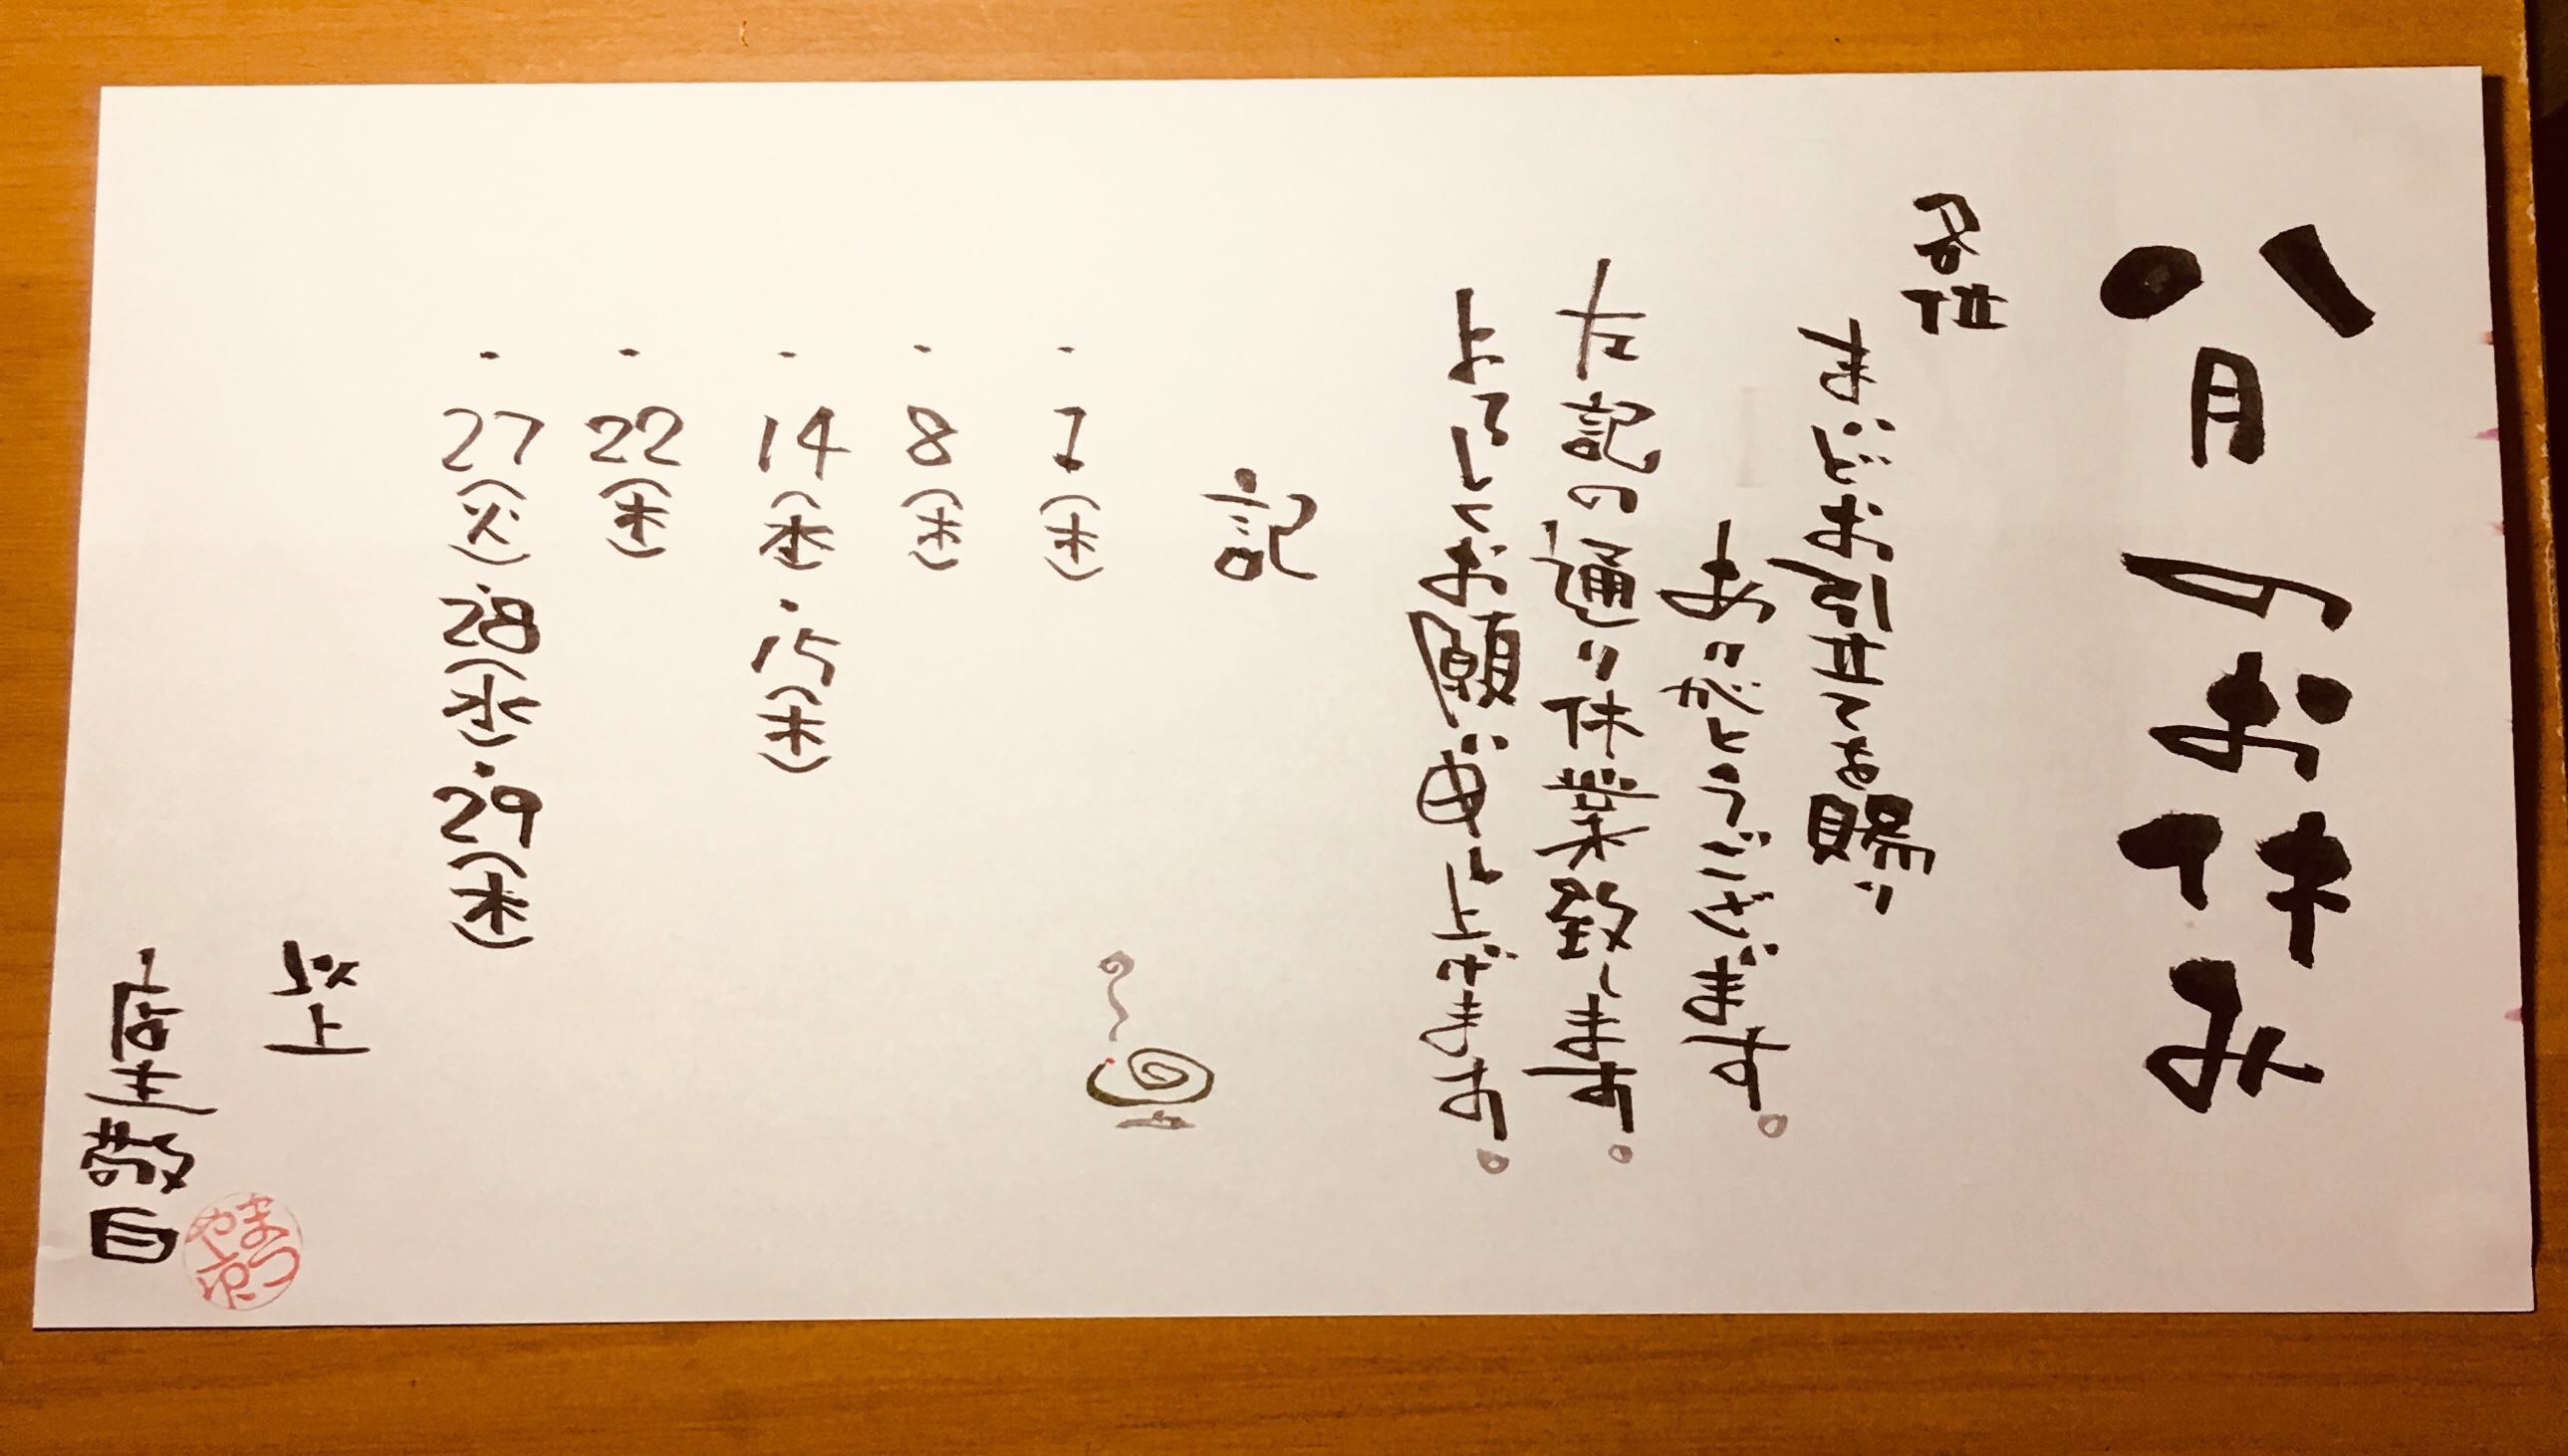 八月のお休み
各位
まいどお引立てを賜り
ありがとうございます。
左記の通り休業致します。
よろしくお願い申し上げます。
記
・1(木)
・8(木)
・14(水)・15(木)
・22(木)
・27(火)・28(水)・29(木)
以上
店主敬白